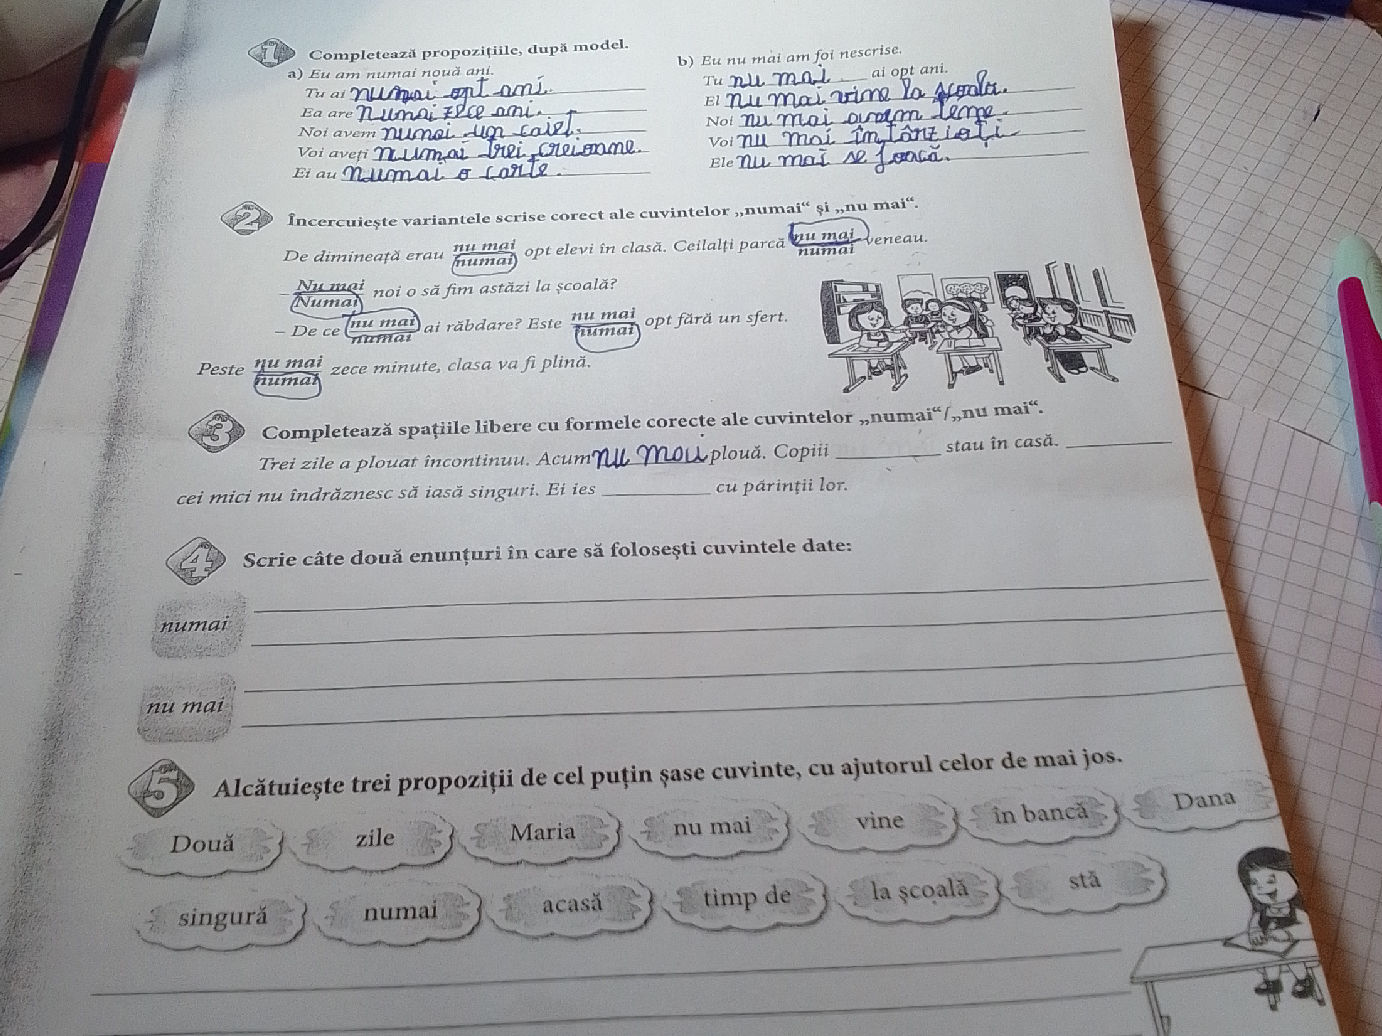 1 Completează propozițiile, după model.
a) Eu am numai nouă ani.
Tu ai numai opt ani.
Ea are numai zece ani.
Noi avem numai un caiet.
Voi aveți numai trei creioane.
Ei au numai o carte.
b) Eu nu mai am foi nescrise.
Tu nu mai ai opt ani.
El nu mai vine la școală.
Noi nu mai avem teme.
Voi nu mai întârziați
Ele nu mai se joacă.
2 Încercuiește variantele scrise corect ale cuvintelor „numai“ și „nu mai“.
De dimineață erau nu mai / numai opt elevi în clasă. Ceilalți parcă nu mai / numai veneau.
– Nu mai / Numai noi o să fim astăzi la școală?
– De ce nu mai / numai ai răbdare? Este nu mai / numai opt fără un sfert.
Peste nu mai / numai zece minute, clasa va fi plină.
3 Completează spațiile libere cu formele corecte ale cuvintelor „numai“/„nu mai“.
Trei zile a plouat încontinuu. Acum nu mai plouă. Copiii ________ stau în casă. ________
cei mici nu îndrăznesc să iasă singuri. Ei ies ________ cu părinții lor.
4 Scrie câte două enunțuri în care să folosești cuvintele date:
numai
nu mai
5 Alcătuiește trei propoziții de cel puțin șase cuvinte, cu ajutorul celor de mai jos.
Două zile Maria nu mai vine în bancă Dana
singură numai acasă timp de la școală stă